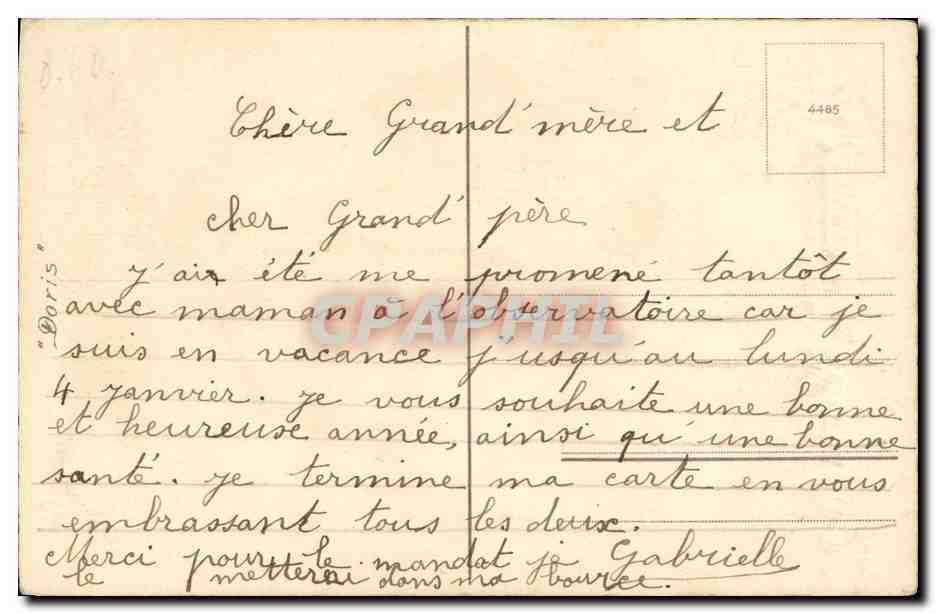 4485
Chère Grand'mère et
cher Grand'père
J'ai été me promené tantôt
avec maman à l'observatoire car je
suis en vacance j'usqu'au lundi
4 Janvier. Je vous souhaite une bonne
et heureuse année, ainsi qu'une bonne
santé. Je termine ma carte en vous
embrassant tous les deux.
Gabrielle
Merci pour le mandat je
le metterai dans ma bource.
"Doris"
CPAPHIL